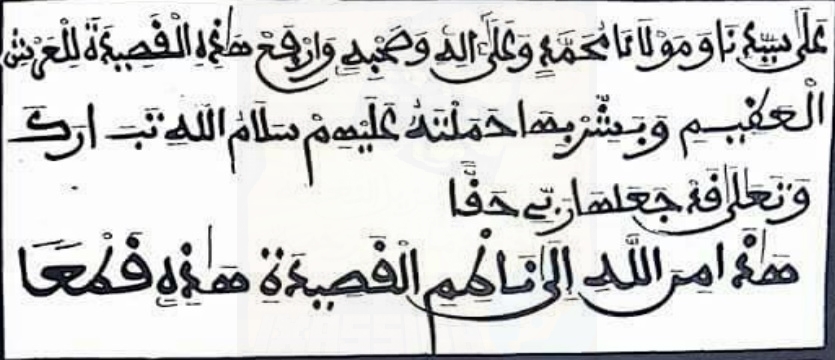 عَلَى سَيِّدِنَا وَمَوْلَانَا مُحَمَّدٍ وَعَلَى الِهِ وَصَحْبِهِ وَارْفَعْ هَذِهِ الْقَصِيدَةَ لِلْعَرْشِ
الْعَظِيمِ وَبَشِّرْ بِهَا حَمَلَتَهُ عَلَيْهِمْ سَلَامُ اللَّهِ تَبَارَكَ
وَتَعَلَى قَدْ جَعَلَهَا رَبِّي حَقًّا
هَذَا مِنَ اللَّهِ إِلَى نَاظِمِ الْقَصِيدَةِ هَذِهِ قَطْعًا